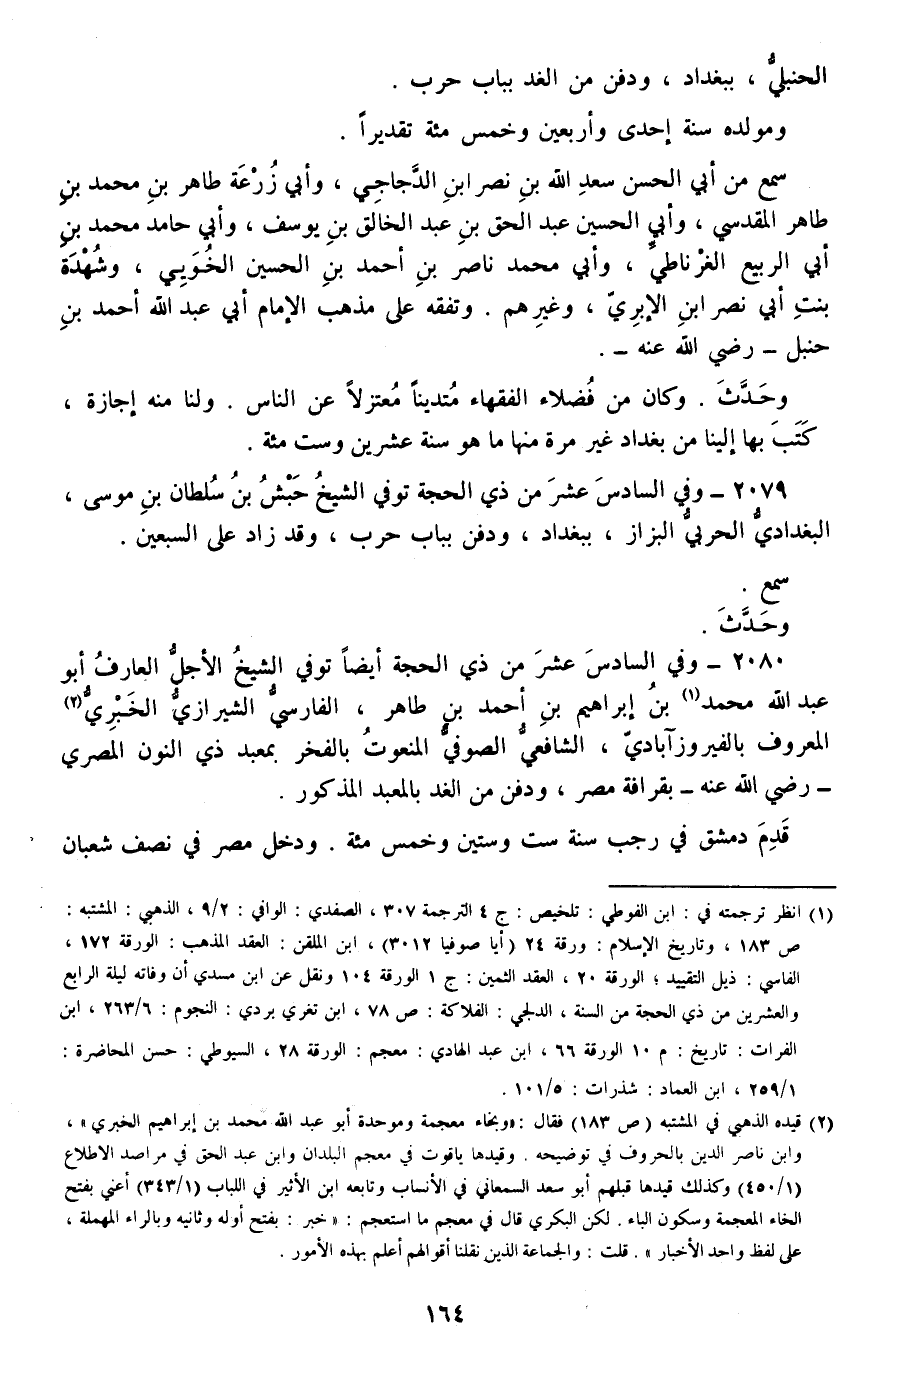 الحنبليُّ ، ببغداد ، ودفن من الغد بباب حرب .
ومولده سنة إحدى وأربعين وخمس مئة تقديراً .
سمع من أبي الحسن سعدِ الله بنِ نصر ابنِ الدَّجاجي ، وأبي زُرْعَة طاهر بنِ محمد بنِ
طاهر المقدسي ، وأبي الحسين عبد الحق بنِ عبد الخالق بنِ يوسف ، وأبي حامد محمد بنِ
أبي الربيع الغرْناطيِّ ، وأبي محمد ناصر بنِ أحمد بنِ الحسين الخُوَيي ، وشُهْدَة
بنتِ أبي نصر ابنِ الإبريّ ، وغيرِهم . وتفقه على مذهب الإمام أبي عبد الله أحمد بنِ
حنبل ــ رضي الله عنه ــ .
وحَدَّثَ . وكان من فُضلاء الفقهاء مُتديناً مُعتزلاً عن الناس . ولنا منه إجازة ،
كَتَبَ بها إلينا من بغداد غير مرة منها ما هو سنة عشرين وست مئة .
٢٠٧٩ ــ وفي السادسَ عشرَ من ذي الحجة توفي الشيخُ حَبْشُ بنُ سُلطان بنِ موسى ،
البغداديُّ الحربيُّ البزاز ، ببغداد ، ودفن بباب حرب ، وقد زاد على السبعين .
سمع .
وحَدَّثَ .
٢٠٨٠ ــ وفي السادسَ عشرَ من ذي الحجة أيضاً توفي الشيخُ الأجلُّ العارفُ أبو
عبد الله محمد(١) بنُ إبراهيم بنِ أحمد بنِ طاهر ، الفارسيُّ الشيرازيُّ الخَبْريُّ(٢)
المعروف بالفيروزآباديّ ، الشافعيُّ الصوفيُّ المنعوتُ بالفخر بمعبد ذي النون المصري
ــ رضي الله عنه ــ بقرافة مصر ، ودفن من الغد بالمعبد المذكور .
قَدِمَ دمشق في رجب سنة ست وستين وخمس مئة . ودخل مصر في نصف شعبان
(١) انظر ترجمته في : ابن الفوطي : تلخيص : ج ٤ الترجمة ٣٠٧ ، الصفدي : الوافي : ٩/٢ ، الذهبي : المشتبه :
ص ١٨٣ ، وتاريخ الإسلام : ورقة ٢٤ (أيا صوفيا ٣٠١٢) ، ابن الملقن : العقد المذهب : الورقة ١٧٢ ،
الفاسي : ذيل التقييد ؛ الورقة ٢٠ ، العقد الثمين : ج ١ الورقة ١٠٤ ونقل عن ابن مسدي أن وفاته ليلة الرابع
والعشرين من ذي الحجة من السنة ، الدلجي : الفلاكة : ص ٧٨ ، ابن تغري بردي : النجوم : ٢٦٣/٦ ، ابن
الفرات : تاريخ : م ١٠ الورقة ٦٦ ، ابن عبد الهادي : معجم : الورقة ٢٨ ، السيوطي : حسن المحاضرة :
٢٥٩/١ ، ابن العماد : شذرات : ١٠١/٥ .
(٢) قيده الذهبي في المشتبه ( ص ١٨٣) فقال : «وبخاء معجمة وموحدة أبو عبد الله محمد بن إبراهيم الخبري» ،
وابن ناصر الدين بالحروف في توضيحه . وقيدها ياقوت في معجم البلدان وابن عبد الحق في مراصد الاطلاع
(٤٥٠/١) وكذلك قيدها قبلهم أبو سعد السمعاني في الأنساب وتابعه ابن الأثير في اللباب (٣٤٣/١) أعني بفتح
الخاء المعجمة وسكون الباء . لكن البكري قال في معجم ما استعجم : « خبر : بفتح أوله وثانيه وبالراء المهملة ،
على لفظ واحد الأخبار » . قلت : والجماعة الذين نقلنا أقوالهم أعلم بهذه الأمور .
١٦٤